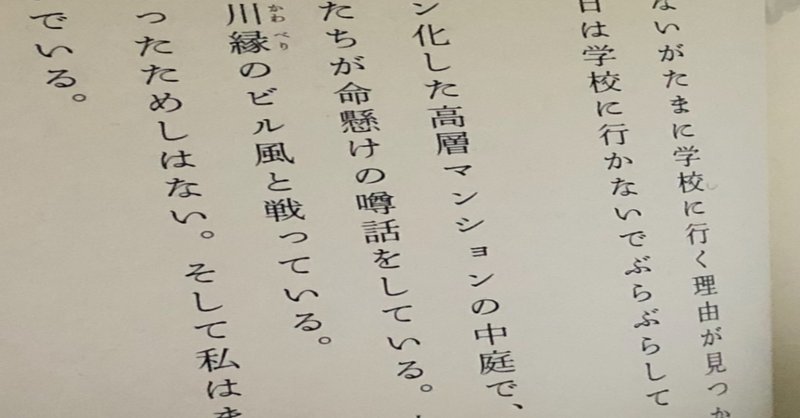 ないがたまに学校に行く理由が見つか
日は学校に行かないでぶらぶらして
ン化した高層マンションの中庭で、
たちが命懸けの噂話をしている。
川縁のビル風と戦っている。
ったためしはない。そして私はま
でいる。